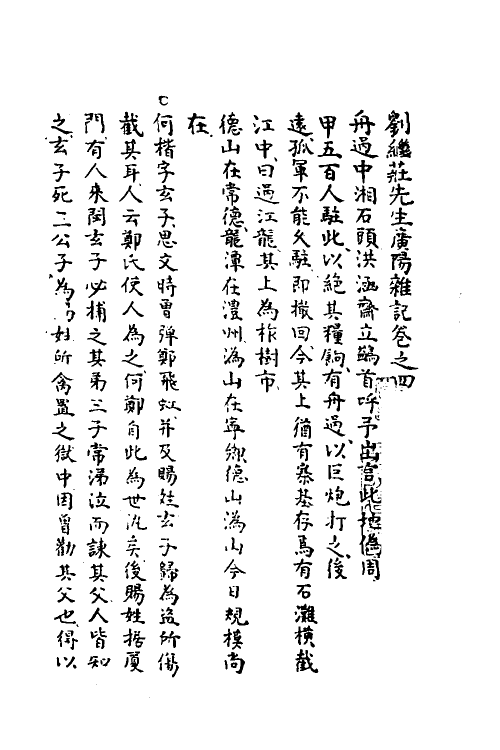 劉繼莊先生廣陽雜記卷之四
舟過中湘石頭洪涵齋立鷁首呼予出言此地偽周
甲五百人駐此以絕其糧餉有舟過以巨炮打之後
遠孤軍不能久駐即撤回今其上猶有寨基存焉有石灘橫截
江中曰過江龍其上為柞樹市
德山在常德龍潭在澧州溈山在寧鄉德山溈山今日規模尚
在
何楷字玄子思文時曾彈鄭飛虹并及賜姓玄子歸為盜所傷
截其耳人云鄭氏使人為之何鄭自此為世仇矣後賜姓據厦
門有人來閩玄子必捕之其弟三子常涕泣而諫其父人皆知
之玄子死三公子為賜姓所禽置之獄中因曾勸其父也得以